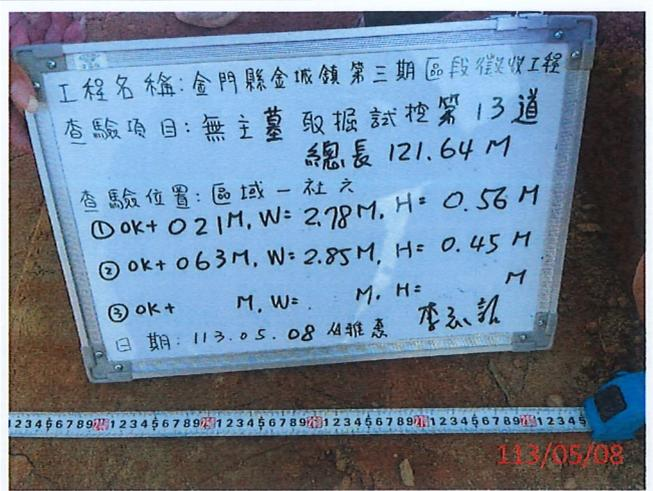 工程名稱:金門縣金城鎮第三期區段徵收工程
查驗項目:無主墓取掘試挖第13道
總長 121.64 M
查驗位置:區域一社六
①0K+021M, W=2.78M, H=0.56M
②0K+063M, W=2.85M, H=0.45M
③0K+ M, W= M, H= M
日期:113.05.08
113/05/08